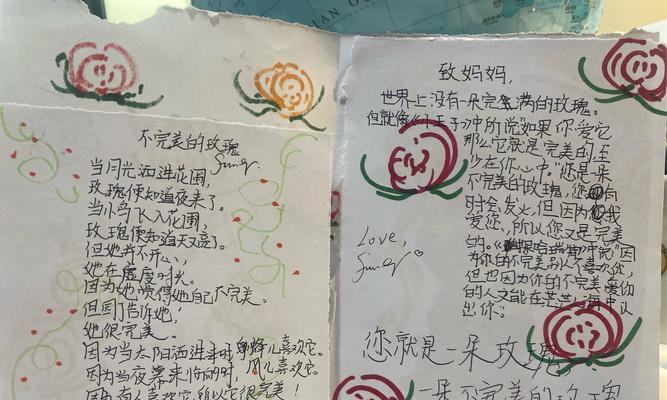 不完美的玫瑰
当月光洒进花圃，
玫瑰便知道夜来了。
当小鸟飞入花圃，
玫瑰便知道天亮了。
但她并不开心，
她在虚度时光。
因为她觉得她自己不完美。
但园丁告诉她：
她很完美。
因为当太阳洒进来时，蜂儿喜欢它。
因为当夜幕来临时，风儿喜欢它。
因为有人喜欢它，所以它很完美！
致妈妈，
世界上没有一朵完全满的玫瑰。
但就像《小王子》中所说"如果你爱它
那么它就是完美的，至
少在你心中。"您是一朵
不完美的玫瑰，您有
时会发火，但因为我
爱您，所以您又是完美
的。中说"因
为你的不完美别人不喜欢你，
但也因为你的不完美，爱你
的人又能在茫茫人海中认
出你。"
Love,
您就是一朵玫瑰
一朵不完美的玫瑰